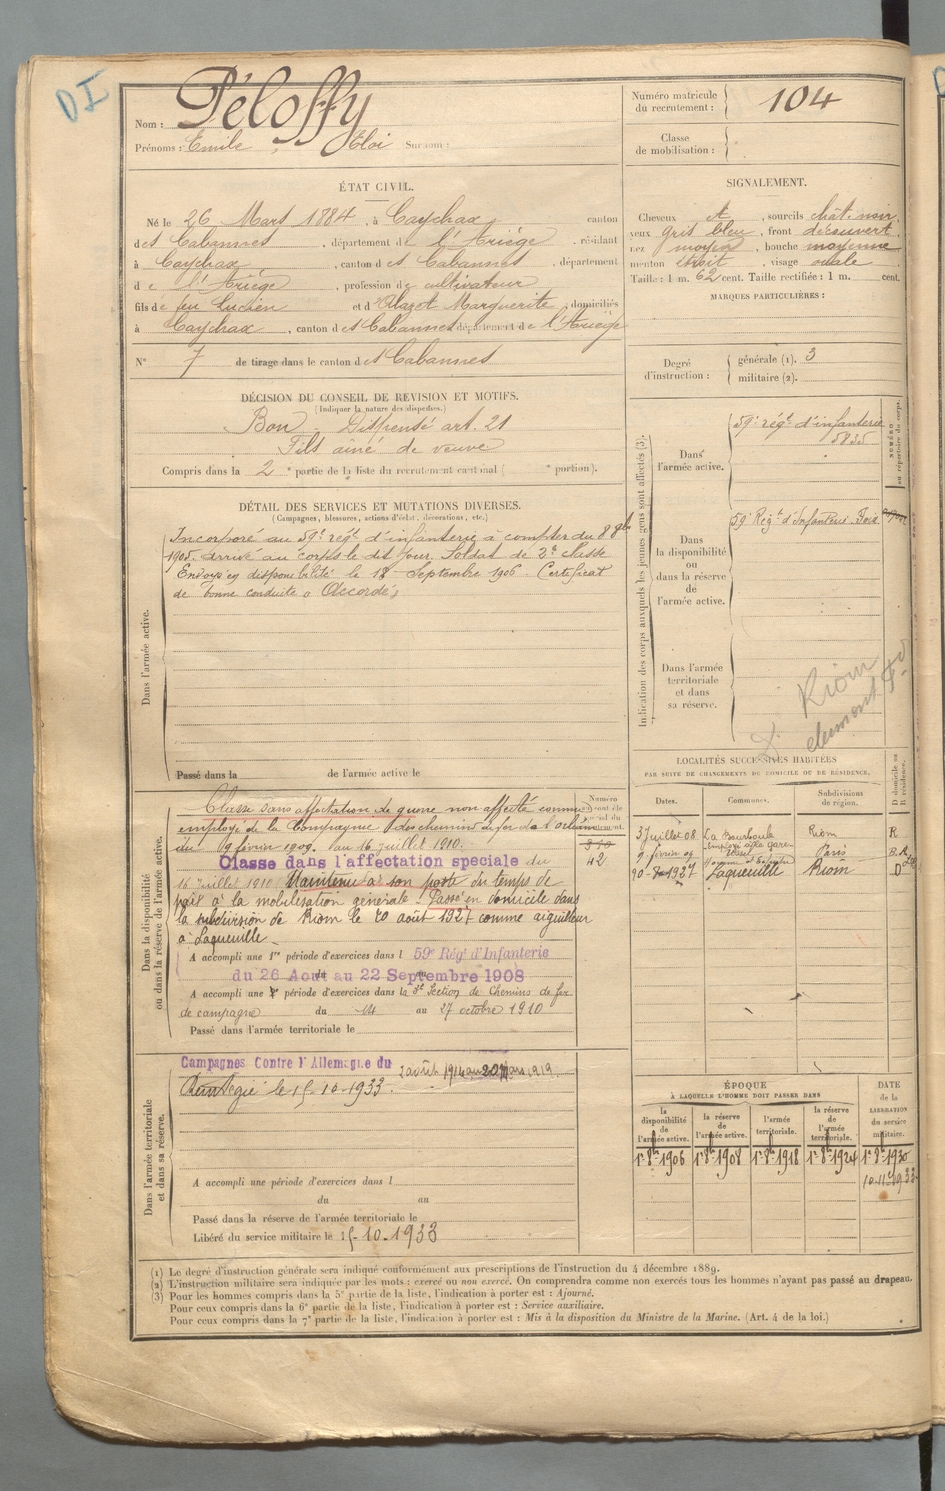 DI
Nom : Péloffy
Prénoms : Emile Eloi Surnom :
Numéro matricule du recrutement : 104
Classe de mobilisation :
ÉTAT CIVIL.
Né le 26 Mars 1884, à Caychax canton
des Cabannes, département de l'Ariège, résidant
à Caychax, canton des Cabannes département
de l'Ariège, profession de cultivateur
fils de feu Lucien et d'Alazet Marguerite, domiciliés
à Caychax, canton des Cabannes département de l'Ariège
N° 7 de tirage dans le canton des Cabannes
SIGNALEMENT.
Cheveux et, sourcils chât. noir,
yeux gris bleu, front découvert,
nez moyen, bouche moyenne
menton étroit, visage ovale
Taille : 1 m. 62 cent. Taille rectifiée : 1 m. cent.
MARQUES PARTICULIÈRES :
Degré d'instruction : générale (1). 3
militaire (2).
DÉCISION DU CONSEIL DE REVISION ET MOTIFS.
(Indiquer la nature des dispenses.)
Bon. Dispensé art. 21
Fils aîné de veuve
Compris dans la 2e partie de la liste du recrutement cantonal ( e portion).
DÉTAIL DES SERVICES ET MUTATIONS DIVERSES.
(Campagnes, blessures, actions d'éclat, décorations, etc.)
Dans l'armée active.
Incorporé au 59e régt d'infanterie à compter du 8 8bre
1905. arrivé au corps le dit jour. Soldat de 2e classe
Envoyé en disponibilité le 18 Septembre 1906. Certificat
de bonne conduite "Accordé"
Passé dans la de l'armée active le
Indication des corps auxquels les jeunes gens sont affectés (3).
NUMÉRO au répertoire du corps.
Dans l'armée active.
59e régt d'infanterie
5835
Dans la disponibilité ou dans la réserve de l'armée active.
59e Régt d'Infanterie Foix
Dans l'armée territoriale et dans sa réserve.
Riom
LOCALITÉS SUCCESSIVES HABITÉES
PAR SUITE DE CHANGEMENTS DE DOMICILE OU DE RÉSIDENCE.
Dates. Communes. Subdivisions de région. D domicile ou R résidence.
3 Juillet 08 La Bourboule Riom R
9 février 09 employé à la gare Paris
20-8-1927 Laqueuille Riom D
Dans la disponibilité ou dans la réserve de l'armée active.
Classé sans affectation de guerre non affecté comme
employé de la Compagnie des chemins de fer de l'orléans
du 9 février 1909. au 16 juillet 1910.
Classe dans l'affectation speciale du
42
16 Juillet 1910 Maintenu à son poste du temps de
paix à la mobilisation générale. Passé en domicile dans
la subdivision de Riom le 20 août 1927 comme aiguilleur
à Laqueuille
A accompli une 1re période d'exercices dans l 59e Régt d'Infanterie
du 26 Aout au 22 Septembre 1908
A accompli une 2e période d'exercices dans la 3e Section de Chemins de fer
de campagne du 14 au 27 octobre 1910
Passé dans l'armée territoriale le
Dans l'armée territoriale et dans sa réserve.
Campagnes Contre l'Allemagne du 2 août 1914 au 20 Mars 1919.
le 15-10-1933.
A accompli une période d'exercices dans l
du au
Passé dans la réserve de l'armée territoriale le
Libéré du service militaire le 15-10-1933
ÉPOQUE
À LAQUELLE L'HOMME DOIT PASSER DANS
la disponibilité de l'armée active. la réserve de l'armée active. l'armée territoriale. la réserve de l'armée territoriale. DATE de la LIBÉRATION du service militaire.
1er 8bre 1906 1er 8bre 1908 1er 8bre 1918 1er 8bre 1924 1er 8bre 1930
(1) Le degré d'instruction générale sera indiqué conformément aux prescriptions de l'instruction du 4 décembre 1889.
(2) L'instruction militaire sera indiquée par les mots : exercé ou non exercé. On comprendra comme non exercés tous les hommes n'ayant pas passé au drapeau.
(3) Pour les hommes compris dans la 5e partie de la liste, l'indication à porter est : Ajourné.
Pour ceux compris dans la 6e partie de la liste, l'indication à porter est : Service auxiliaire.
Pour ceux compris dans la 7e partie de la liste, l'indication à porter est : Mis à la disposition du Ministre de la Marine. (Art. 4 de la loi.)